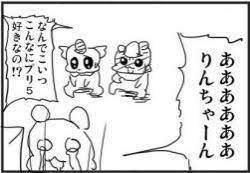 ああああああ
りんちゃーん
なんでこいつ
こんなにプリ5
好きなの!?